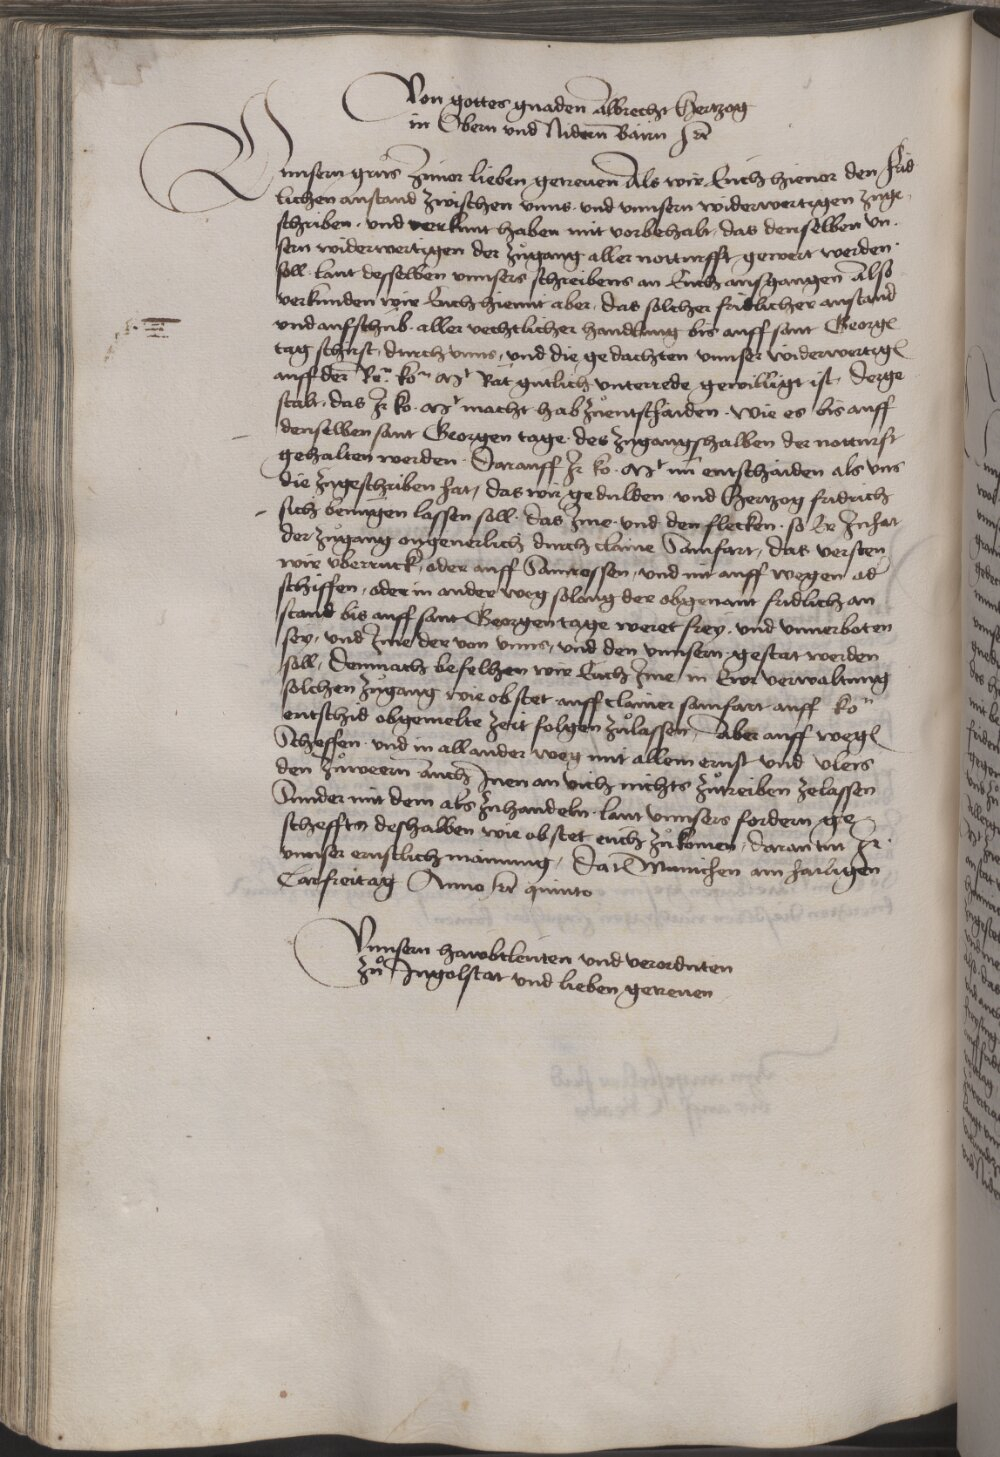 Von gottes gnaden Albrecht Hertzog
in Obern und Nidern Bairn etc
Unnsern grus zuvor lieben getreuen Als wir Euch hievor den frid
lichen anstand zwischen unns und unnsern widerwertigen zuge
schriben und verkunt haben mit vorbehalt, das denselben un
sern widerwertigen der zugang aller notturfft gewert werden
soll laut desselben unnsers schreibens an Euch ausgangen Also
verkunden wir Euch hiemit aber, das solcher fridlicher anstand
und aufschub aller rechtlicher handlung bis auff sant Georgen
tag schirst, durch unns, und die gedachten unnser widerwertigen
auff der Ro. ko. Mt Rat gutlich unterrede gewilligt ist, Derge
stalt, das Ir ko. Mt macht hab zuentschaiden wie es bis auff
denselben sant Georgen tage des zugangshalben der notturft
gehalten werden. Darauff Ir ko. Mt nu entschaiden als uns
die zugeschriben hat, das wir gedulden und Hertzog fridrich
sich benuigen lassen soll. das Ime und den flecken so Er Inhat
der zugang ongeverlich durch claine Samfart, das versten
wir uberruck, oder auff Saumrossen, und nit auff wegen od
schiffen, oder in ander weg solang der obgenant fridlich an
stand bis auff sant Georgen tage weret frey und unverboten
sey, und Ime der von unns, und den unnsern gestat werden
soll, Demnach befelhen wir Euch Ime in Ewr verwaltung
solchen zugang wie obstet auff clainer samfart auff ko.
entschid obgemelte zeit folgen zulassen, Aber auff wegen
Scheffen und in all ander weg mit allem ernst und vleis
den zuweern auch Inen an vich nichts zutreiben zelassen
Sunder mit dem als zuhandeln laut unnsers fordern ge
scheffts deshalben wie obstet euch zukomen, daran tut Ir
unnser ernstlich mainung, Datum Munichen am hailigen
Carfreitag Anno etc quinto
Unnsern hawbtleuten und verordnten
zu Ingolstat und lieben getreuen